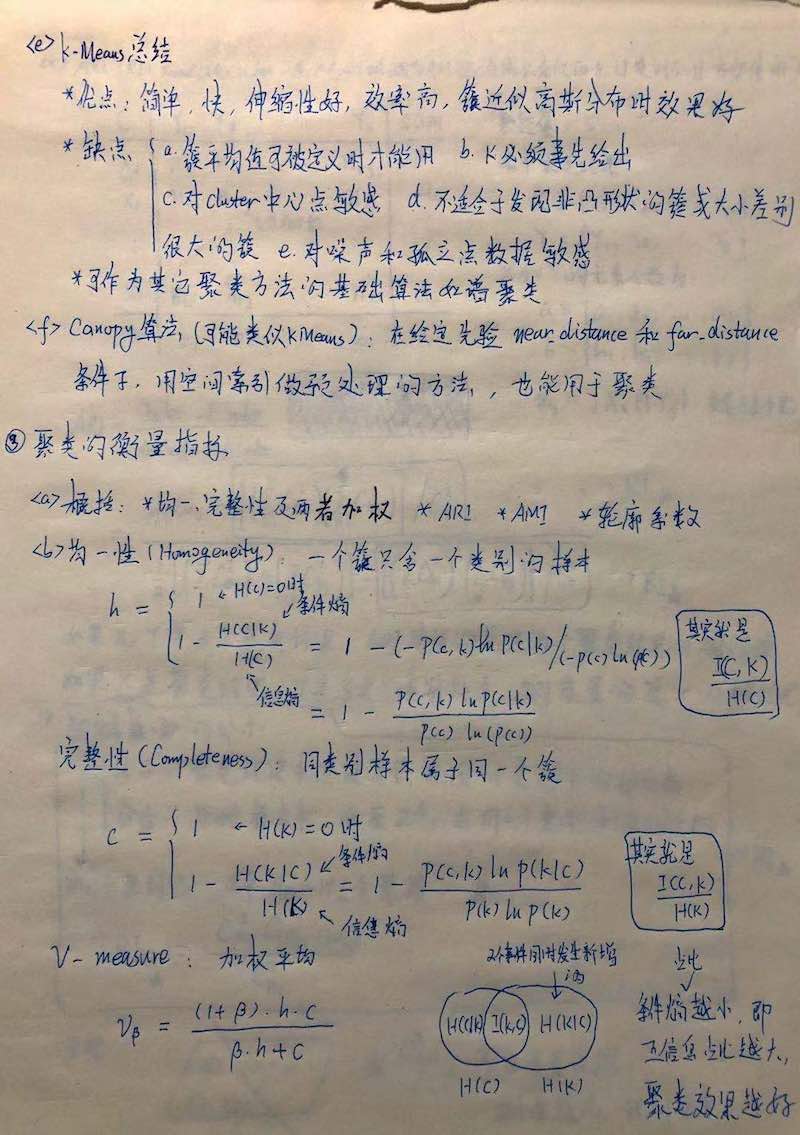 <e> k-Means总结
*优点：简单，快，伸缩性好，效率高，簇近似高斯分布时效果好
*缺点 { a.簇平均值可被定义时才能用 b. K必须事先给出
c.对cluster中心点敏感 d.不适合于发现非凸形状的簇或大小差别
很大的簇 e.对噪声和孤立点数据敏感
*可作为其它聚类方法的基础算法如谱聚类
<f> Canopy算法（可能类似KMeans）：在给定先验near_distance和far_distance
条件下，用空间索引做预处理的方法，也能用于聚类
③ 聚类的衡量指标
<a>概括：*均一、完整性及两者加权 *ARI *AMI *轮廓系数
<b>均一性(Homogeneity)：一个簇只含一个类别的样本
h = { 1 ← H(C)=0时
1 - H(C|K)/H(C) = 1 - (-P(c,k) ln P(c|k)/(-p(c) ln(p(c)))
条件熵
信息熵
= 1 - P(c,k) ln P(c|k) / P(c) ln(P(c))
其实就是
I(C,K)/H(C)
完整性(Completeness)：同类别样本属于同一个簇
c = { 1 ← H(K)=0时
1 - H(K|C)/H(K) = 1 - P(c,k) ln P(k|c) / P(k) ln P(k)
条件熵
信息熵
其实就是
I(C,K)/H(K)
V-measure：加权平均
Vβ = (1+β)·h·c / β·h+c
2个事件同时发生新增
H(C|K) I(K,C) H(K|C)
H(C) H(K)
占比
条件熵越小，即
互信息占比越大，
聚类效果越好